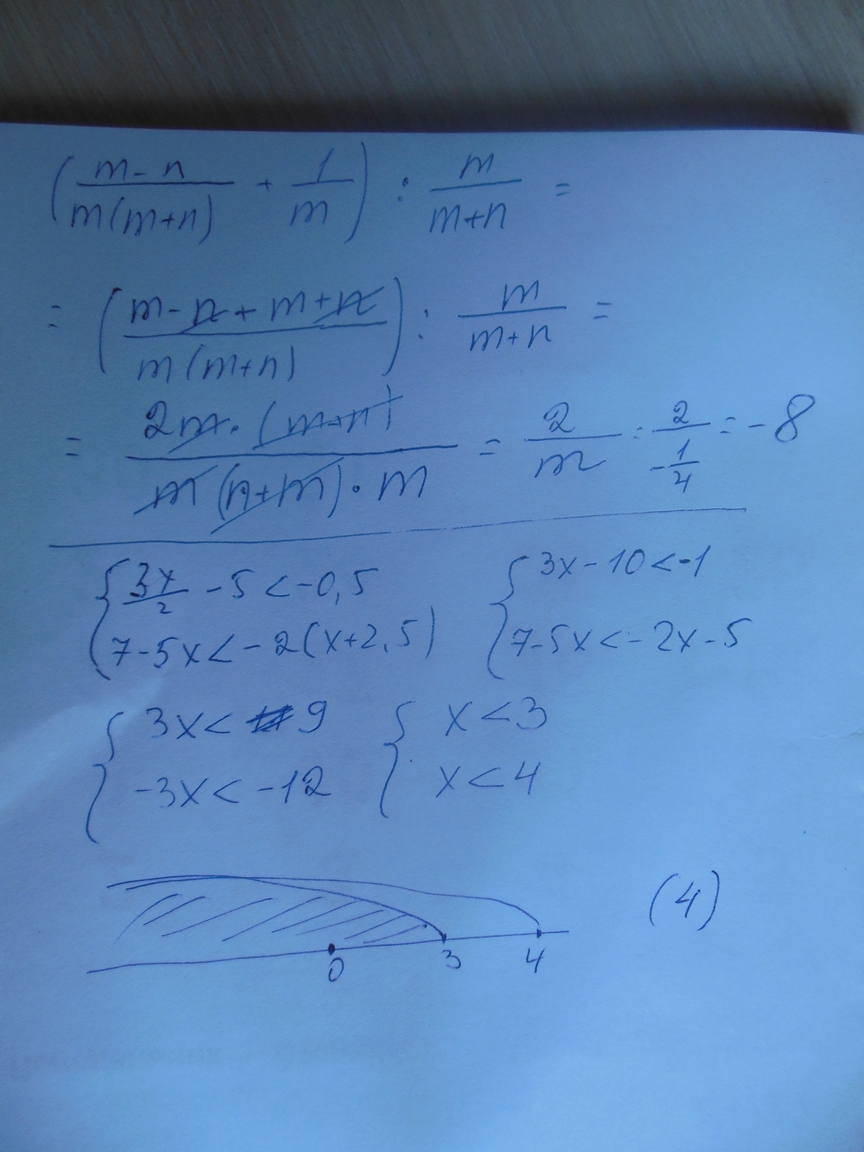 (m-n/m(m+n) + 1/m) : m/m+n =
= (m-n+m+n/m(m+n)) : m/m+n =
= 2m·(m+n)/m(n+m)·m = 2/m = 2/-1/4 = -8
{3x/2 -5<-0,5 {3x-10<-1
7-5x<-2(x+2,5) 7-5x<-2x-5
{3x<9 {x<3
-3x<-12 x<4
(4)
0 3 4